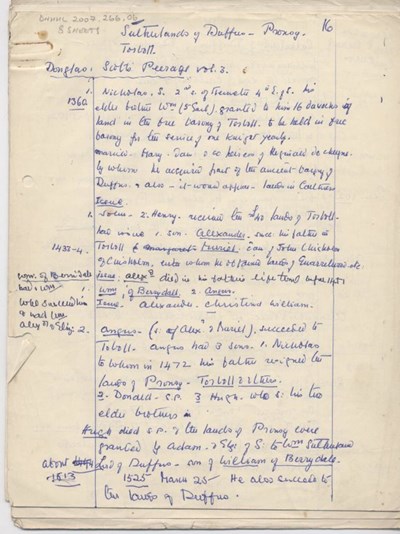 DNHHL 2007.266.05
8 SHEETS
16
Sutherlands of Duffus - Pronsy.
Torboll.
Douglas: Scotts Peerage vol. 3.
1360
1. Nicholas. S. 2nd s. of Kenneth 4th E. of S. his
elder brother Wm (5th Earl). granted to him 16 davochs of
land in the free barony of Torboll. to be held in free
barony for the service of one knight yearly.
married - Mary. dau. & co heiress of Reginald de Cheyne.
by whom he acquired part of the ancient barony of
Duffus. & also - it would appear - lands in Caithness
Issue
1. John - 2. Henry. received the £40 lands of Torboll.
had issue 1. son. Alexander. succ. his father in
1433-4.
Torboll & Muriel dau. of John Chisholm
of Chisholm. with whom he obtained lands of
Issue. alexr. died in his father's lifetime
of Berridale
had s. Wm
1. Wm of Berrydall. 2. Angus.
Issue. Alexander. Christina William.
who succeeded him
& had issue
alexr
2. Angus - (s. of Alexr & Muriel). succeeded to
Torboll. Angus had 3 sons. 1. Nicholas
to whom in 1472 his father resigned the
lands of Pronsy. Torboll & others.
2. Donald - s.p. 3 Hugh. who s. his two
elder brothers in
Hugh died s.p. & the lands of Pronsy were
granted by Adam. E. of S to Wm Sutherland
about
1513
Ld of Duffus - son of William of Berrydale.
1525 March 25 - He also succeeded to
the lands of Duffus.